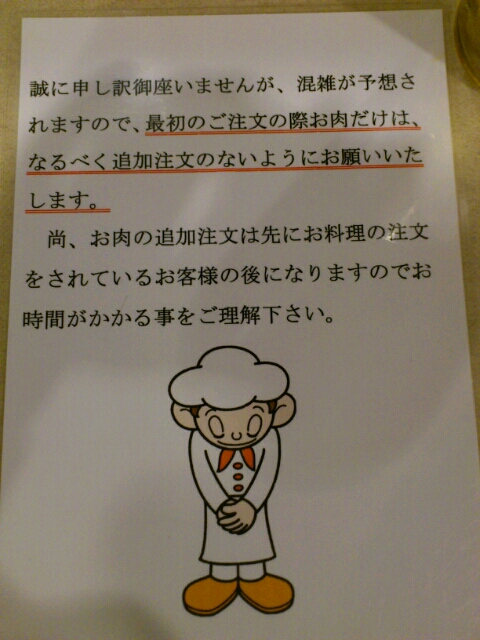 誠に申し訳御座いませんが、混雑が予想さ
れますので、最初のご注文の際お肉だけは、
なるべく追加注文のないようにお願いいた
します。
尚、お肉の追加注文は先にお料理の注文
をされているお客様の後になりますのでお
時間がかかる事をご理解下さい。